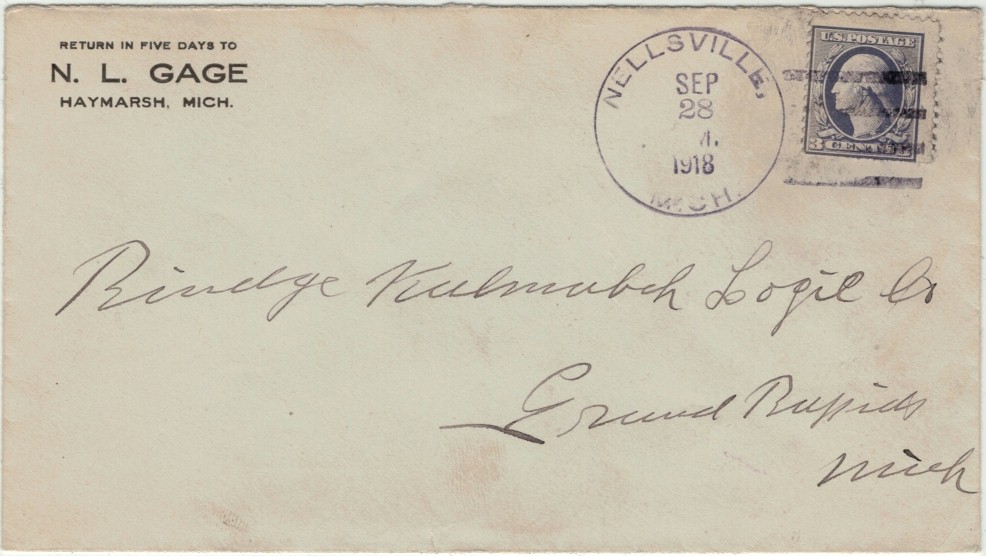 RETURN IN FIVE DAYS TO
N. L. GAGE
HAYMARSH, MICH.
NELLSVILLE,
SEP
28
1918
MICH.
U.S. POSTAGE
3 CENTS 3
Rindge Kalmabch Logie Co
Grand Rapids
Mich